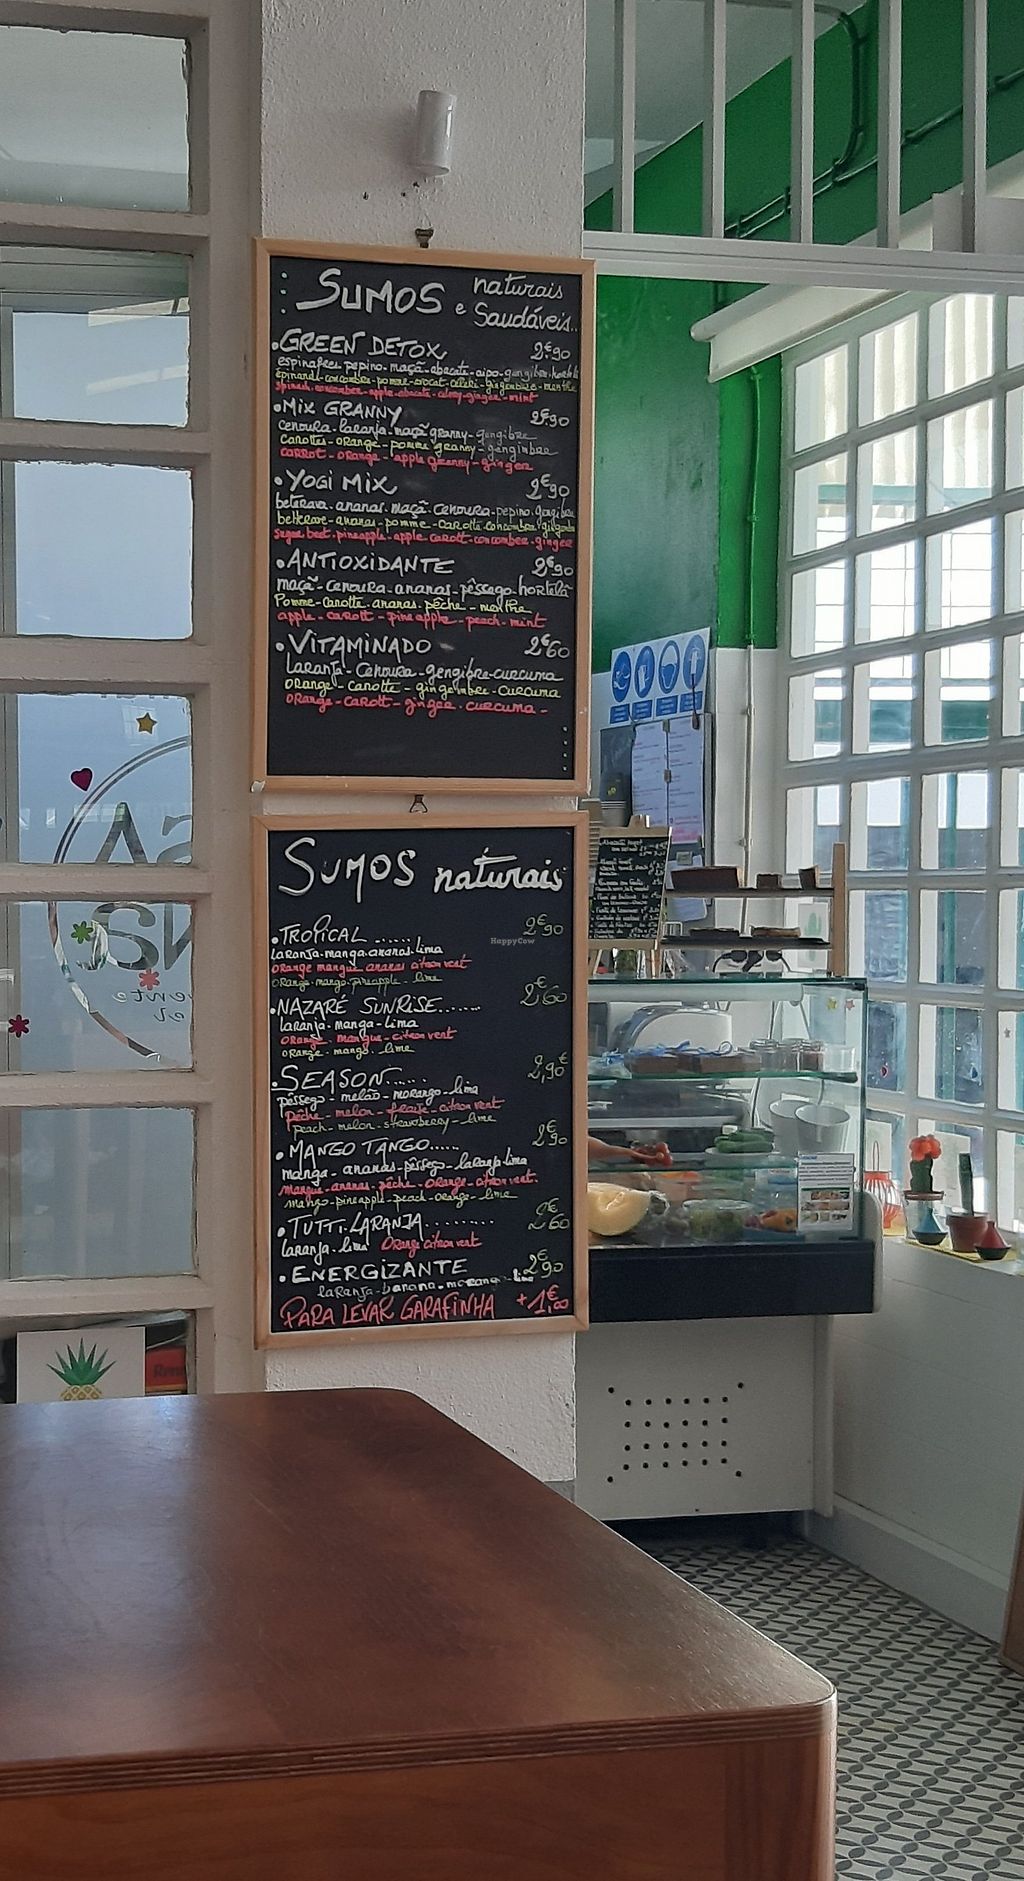 SUMOS naturais
e Saudáveis..
• GREEN DETOX 2€90
espinafres pepino-maçã-abacate-aipo-gengibre-hortelã
épinards-concombre-pomme-avocat-céleri-gingembre-menthe
spinach-concomber-apple-abocate-celery-ginger-mint
• MIX GRANNY 2€90
cenoura-laranja-maçã granny-gengibre
carottes-orange-pomme granny-gengimbre
carrot-orange-apple granny-ginger
• YOGI MIX 2€90
beterava.ananas.maçã.cenoura-pepino.gengibre
betterave-ananas-pomme-carotte.concombre
sugar beet.pineapple-apple carott-concomber-ginger
• ANTIOXIDANTE 2€90
maçã-cenoura-ananas-pêssego-hortelã
Pomme-carotte.ananas.pêche-menthe
apple-carott-pine apple-peach-mint
• VITAMINADO 2€60
laranja-cenoura-gengibre-curcuma
orange-carotte-gingembre-curcuma
orange-carott-ginger.curcuma-
SUMOS naturais
• TROPICAL ...... 2€90
laranja-manga-ananas.lima
orange mangue ananas citron vert
orange-mango-pineapple-lime
HappyCow
• NAZARÉ SUNRISE....... 2€60
laranja-manga-lima
orange-mangue-citron vert
orange-mango.lime
• SEASON...... 2,90€
pêssego-melão-morango-lima
pêche-melon-fraise-citron vert
peach-melon-strawberry-lime
• MANGO TANGO..... 2€90
manga-ananas-pêssego-laranja-lima
mangue-ananas-pêche-orange-citron vert.
mango-pineapple-peach-orange-lime
• TUTTI-LARANJA......... 2€60
laranja.lima orange citron vert
• ENERGIZANTE 2€90
laranja-banana-morango-lima
PARA LEVAR GARAFINHA +1€00